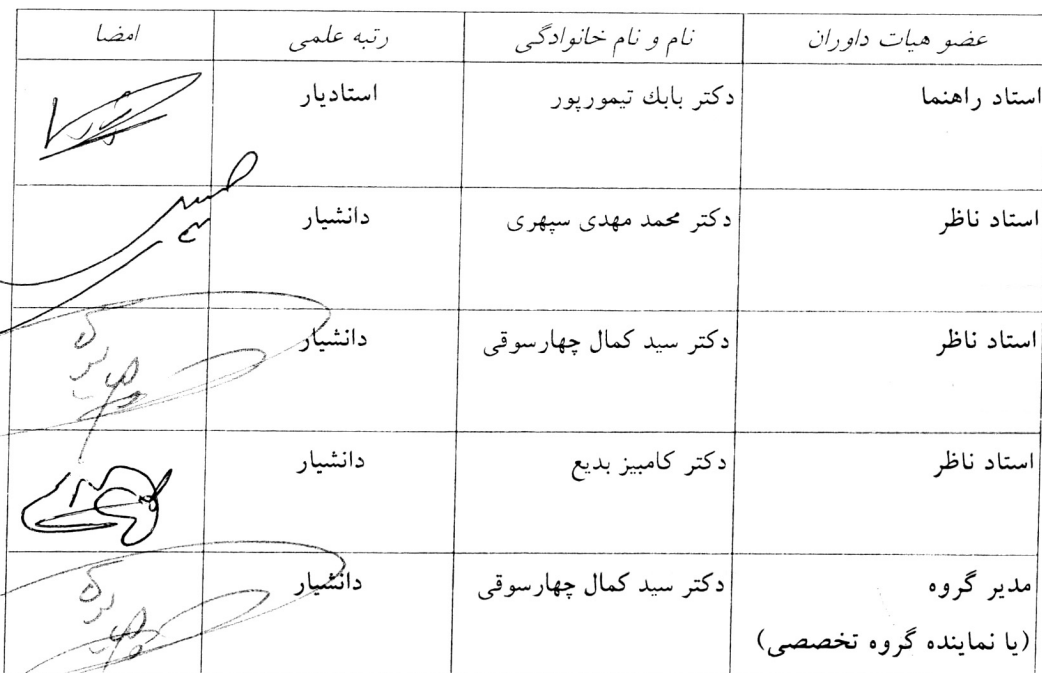 عضو هیات داوران نام و نام خانوادگی رتبه علمی امضا
استاد راهنما دکتر بابك تیمورپور استادیار
استاد ناظر دکتر محمد مهدی سپهری دانشیار
استاد ناظر دکتر سید کمال چهارسوقی دانشیار
استاد ناظر دکتر کامبیز بدیع دانشیار
مدیر گروه دکتر سید کمال چهارسوقی دانشیار
(یا نماینده گروه تخصصی)